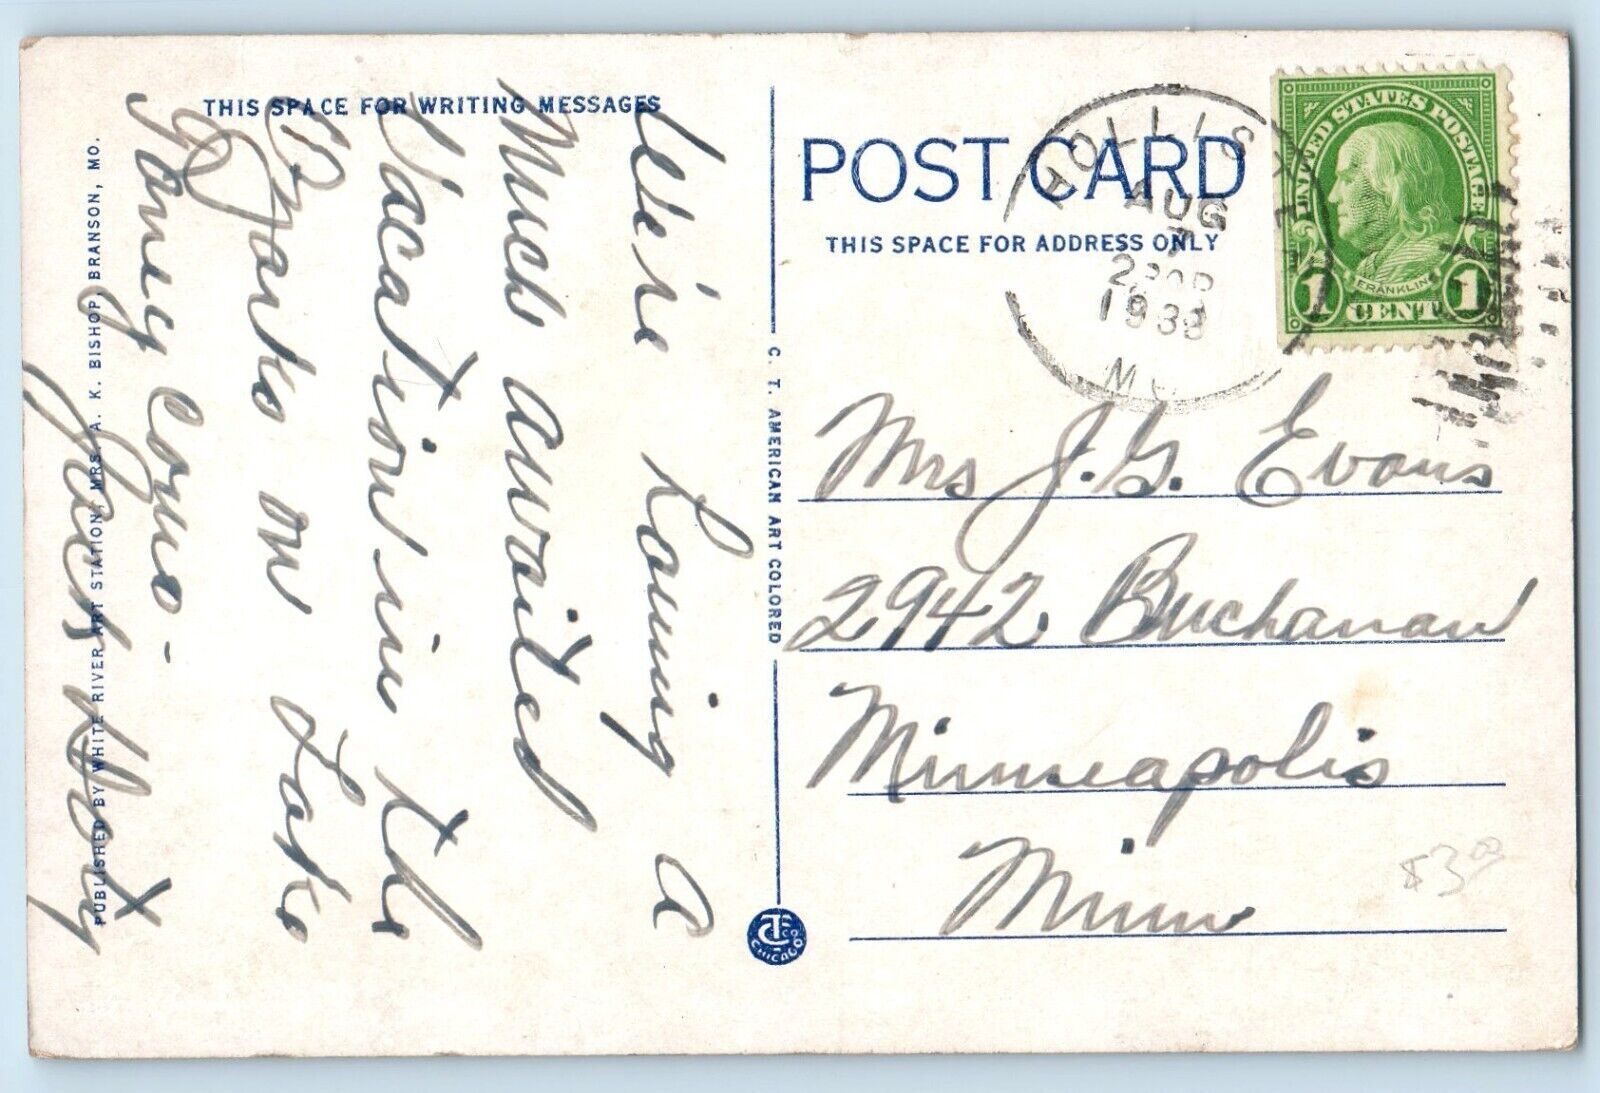 THIS SPACE FOR WRITING MESSAGES
We're Having a
Much awaited
Vacation in the
Ozarks on Lake
Taney Como -
PUBLISHED BY WHITE RIVER ART STATION, MRS. A. K. BISHOP, BRANSON, MO.
C. T. AMERICAN ART COLORED
CTCC
CHICAGO
POST CARD
THIS SPACE FOR ADDRESS ONLY
HOLLISTER
AUG
7
1933
MO.
UNITED STATES POSTAGE
FRANKLIN
1 CENT 1
Mrs J. G. Evans
2942 Buchanan
Minneapolis
Minn
$3.00